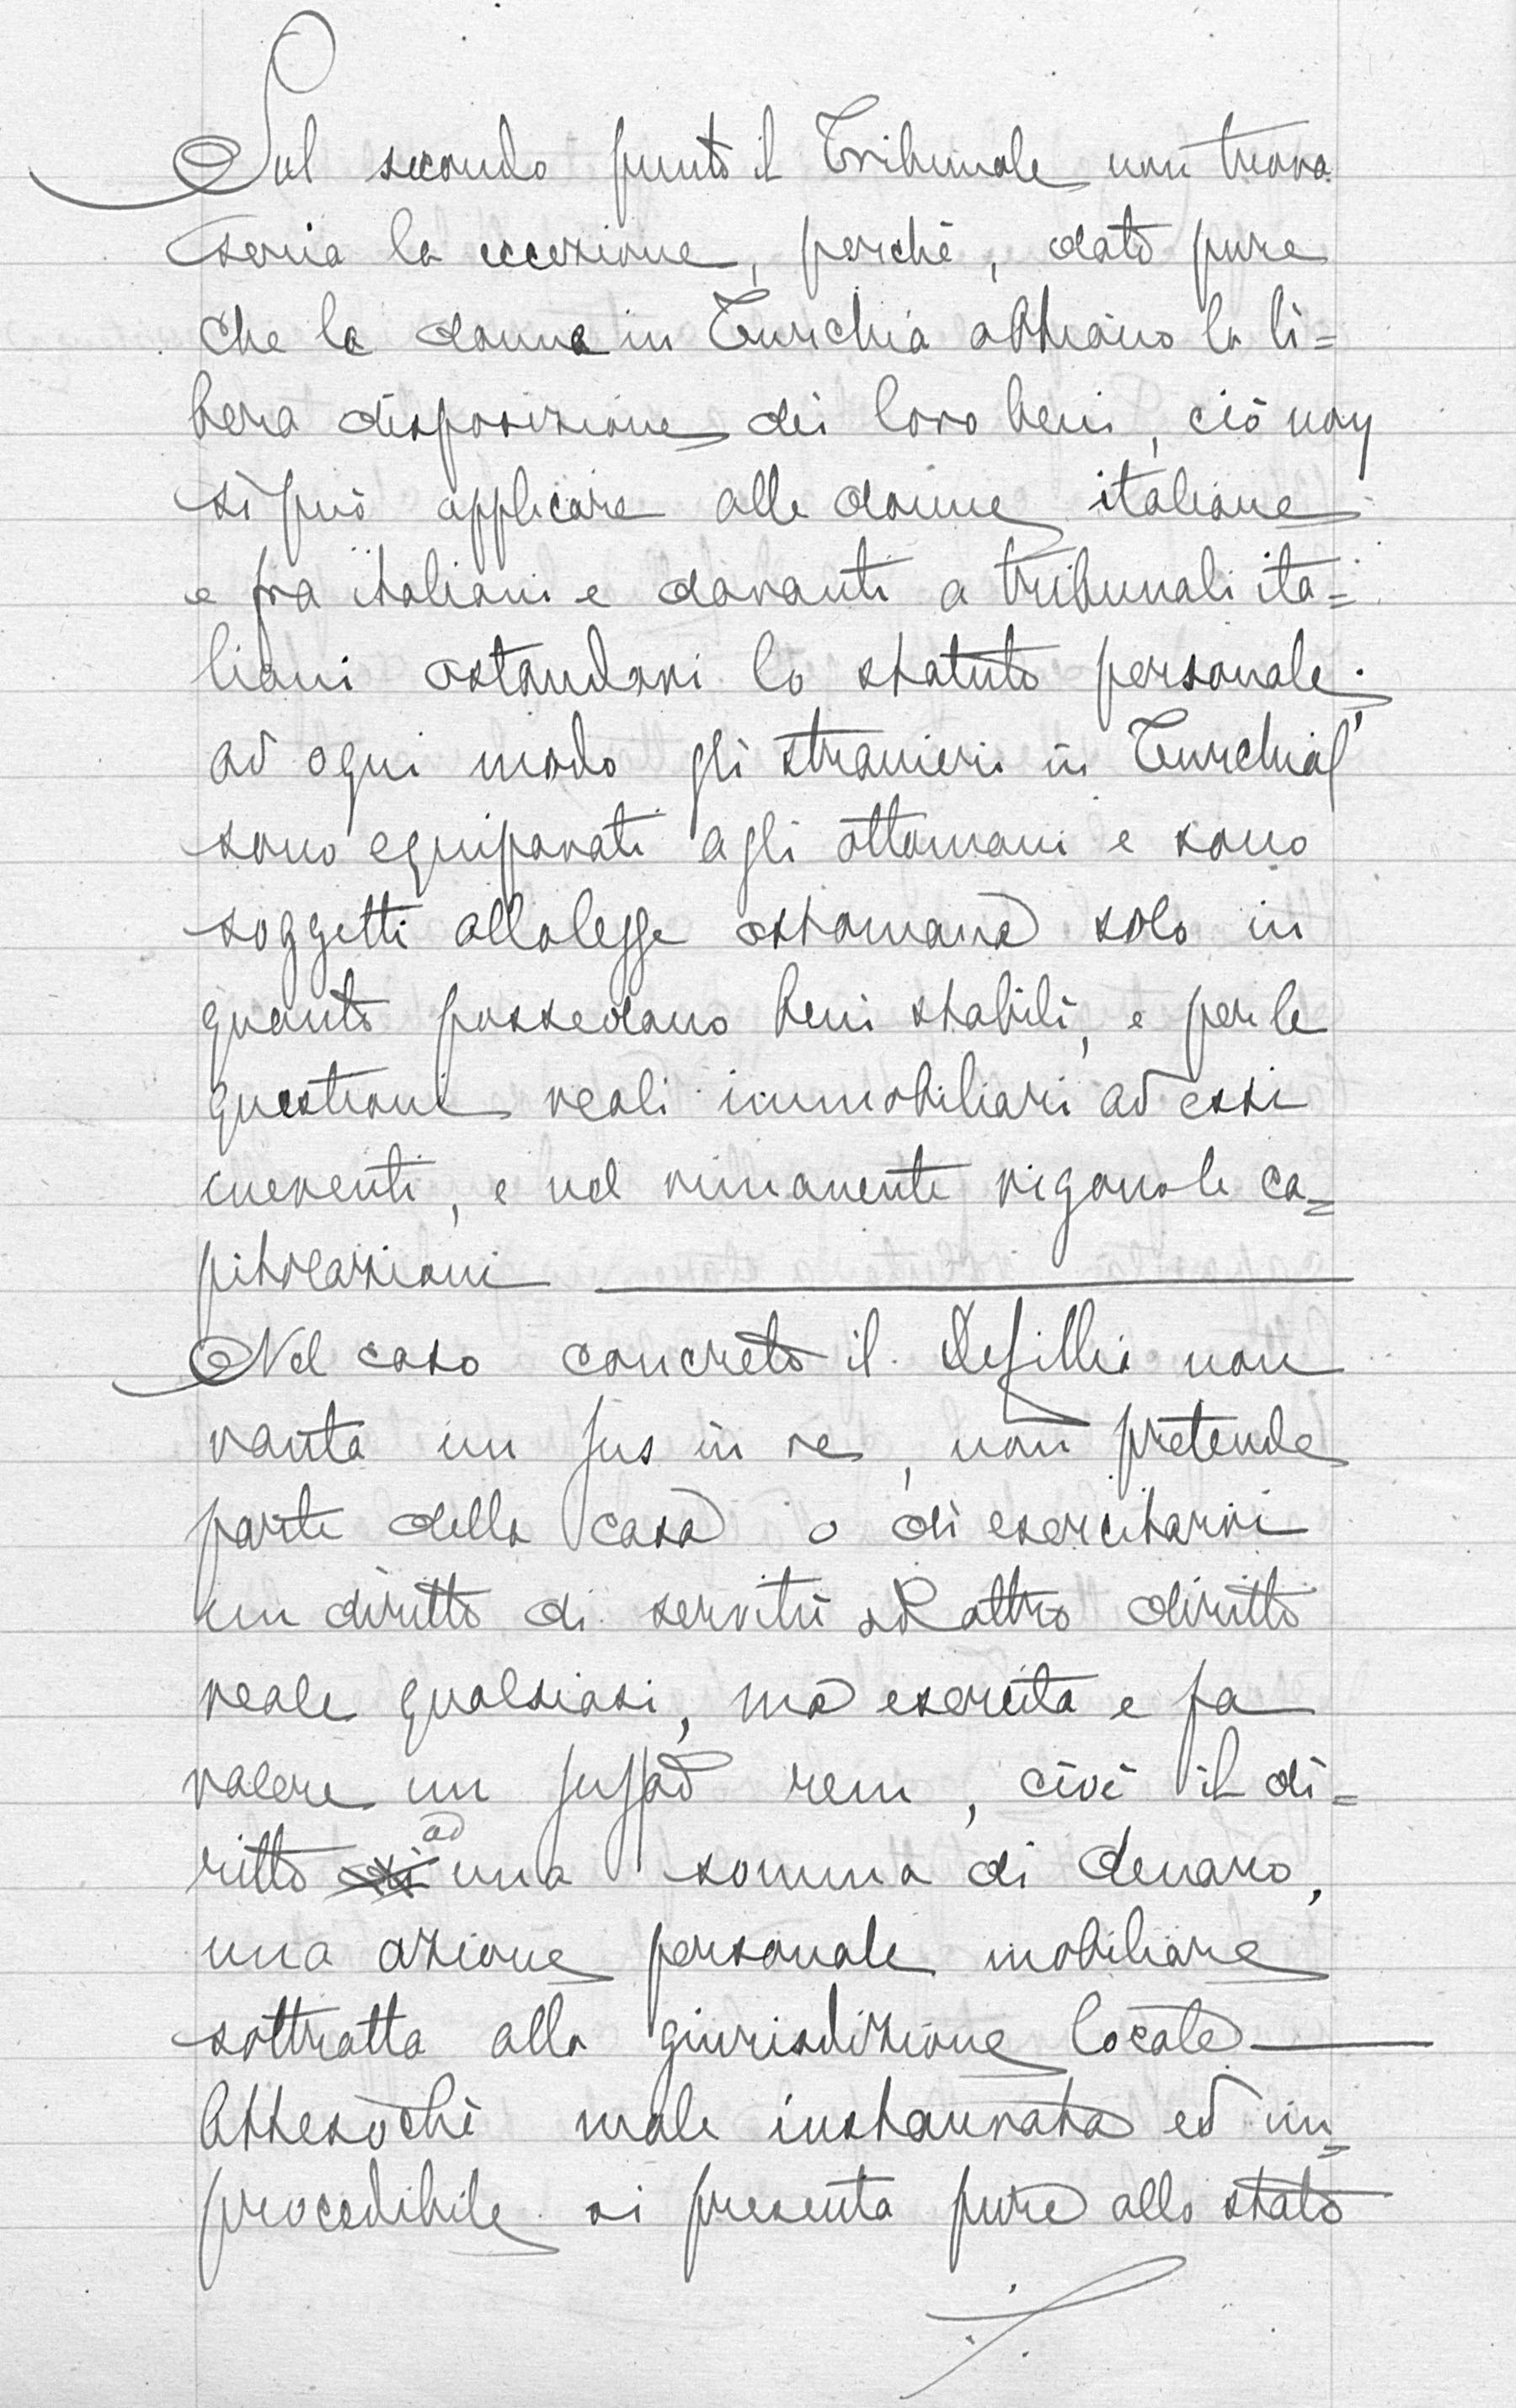 Sul secondo punto il Tribunale non trova
seria la eccezione, perchè, dato pure
che le donne in Turchia abbiano la li=
bera disposizione dei loro beni, ciò non
si può applicare alle donne italiane
e fra italiani e davanti a tribunali ita=
liani ostandovi lo statuto personale;
ad ogni modo gli stranieri in Turchia
sono equiparati agli ottomani e sono
soggetti alla legge ottomana solo in
quanto possedano beni stabili, e per le
questioni reali immobiliari ad essi
inerenti, e nel rimanente vigono le ca=
pitolazioni
Nel caso concreto il non
vanta un jus in re, non pretende
parte della casa o di esercitarvi
un diritto di servitù od altro diritto
reale qualsiasi, ma esercita e fa
valere un jus ad rem, cioè il di=
ritto di ad una somma di denaro,
una azione personale mobiliare
sottratta alla giurisdizione locale
Attesochè male instaurata ed im=
procedibile si presenta pure allo stato